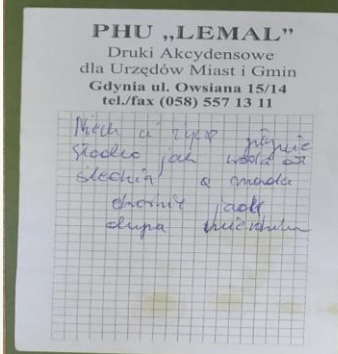 PHU „LEMAL”
Druki Akcydensowe
dla Urzędów Miast i Gmin
Gdynia ul. Owsiana 15/14
tel./fax (058) 557 13 11
Niech ci życie płynie
słodko jak woda
śledzia a
jak
dupa